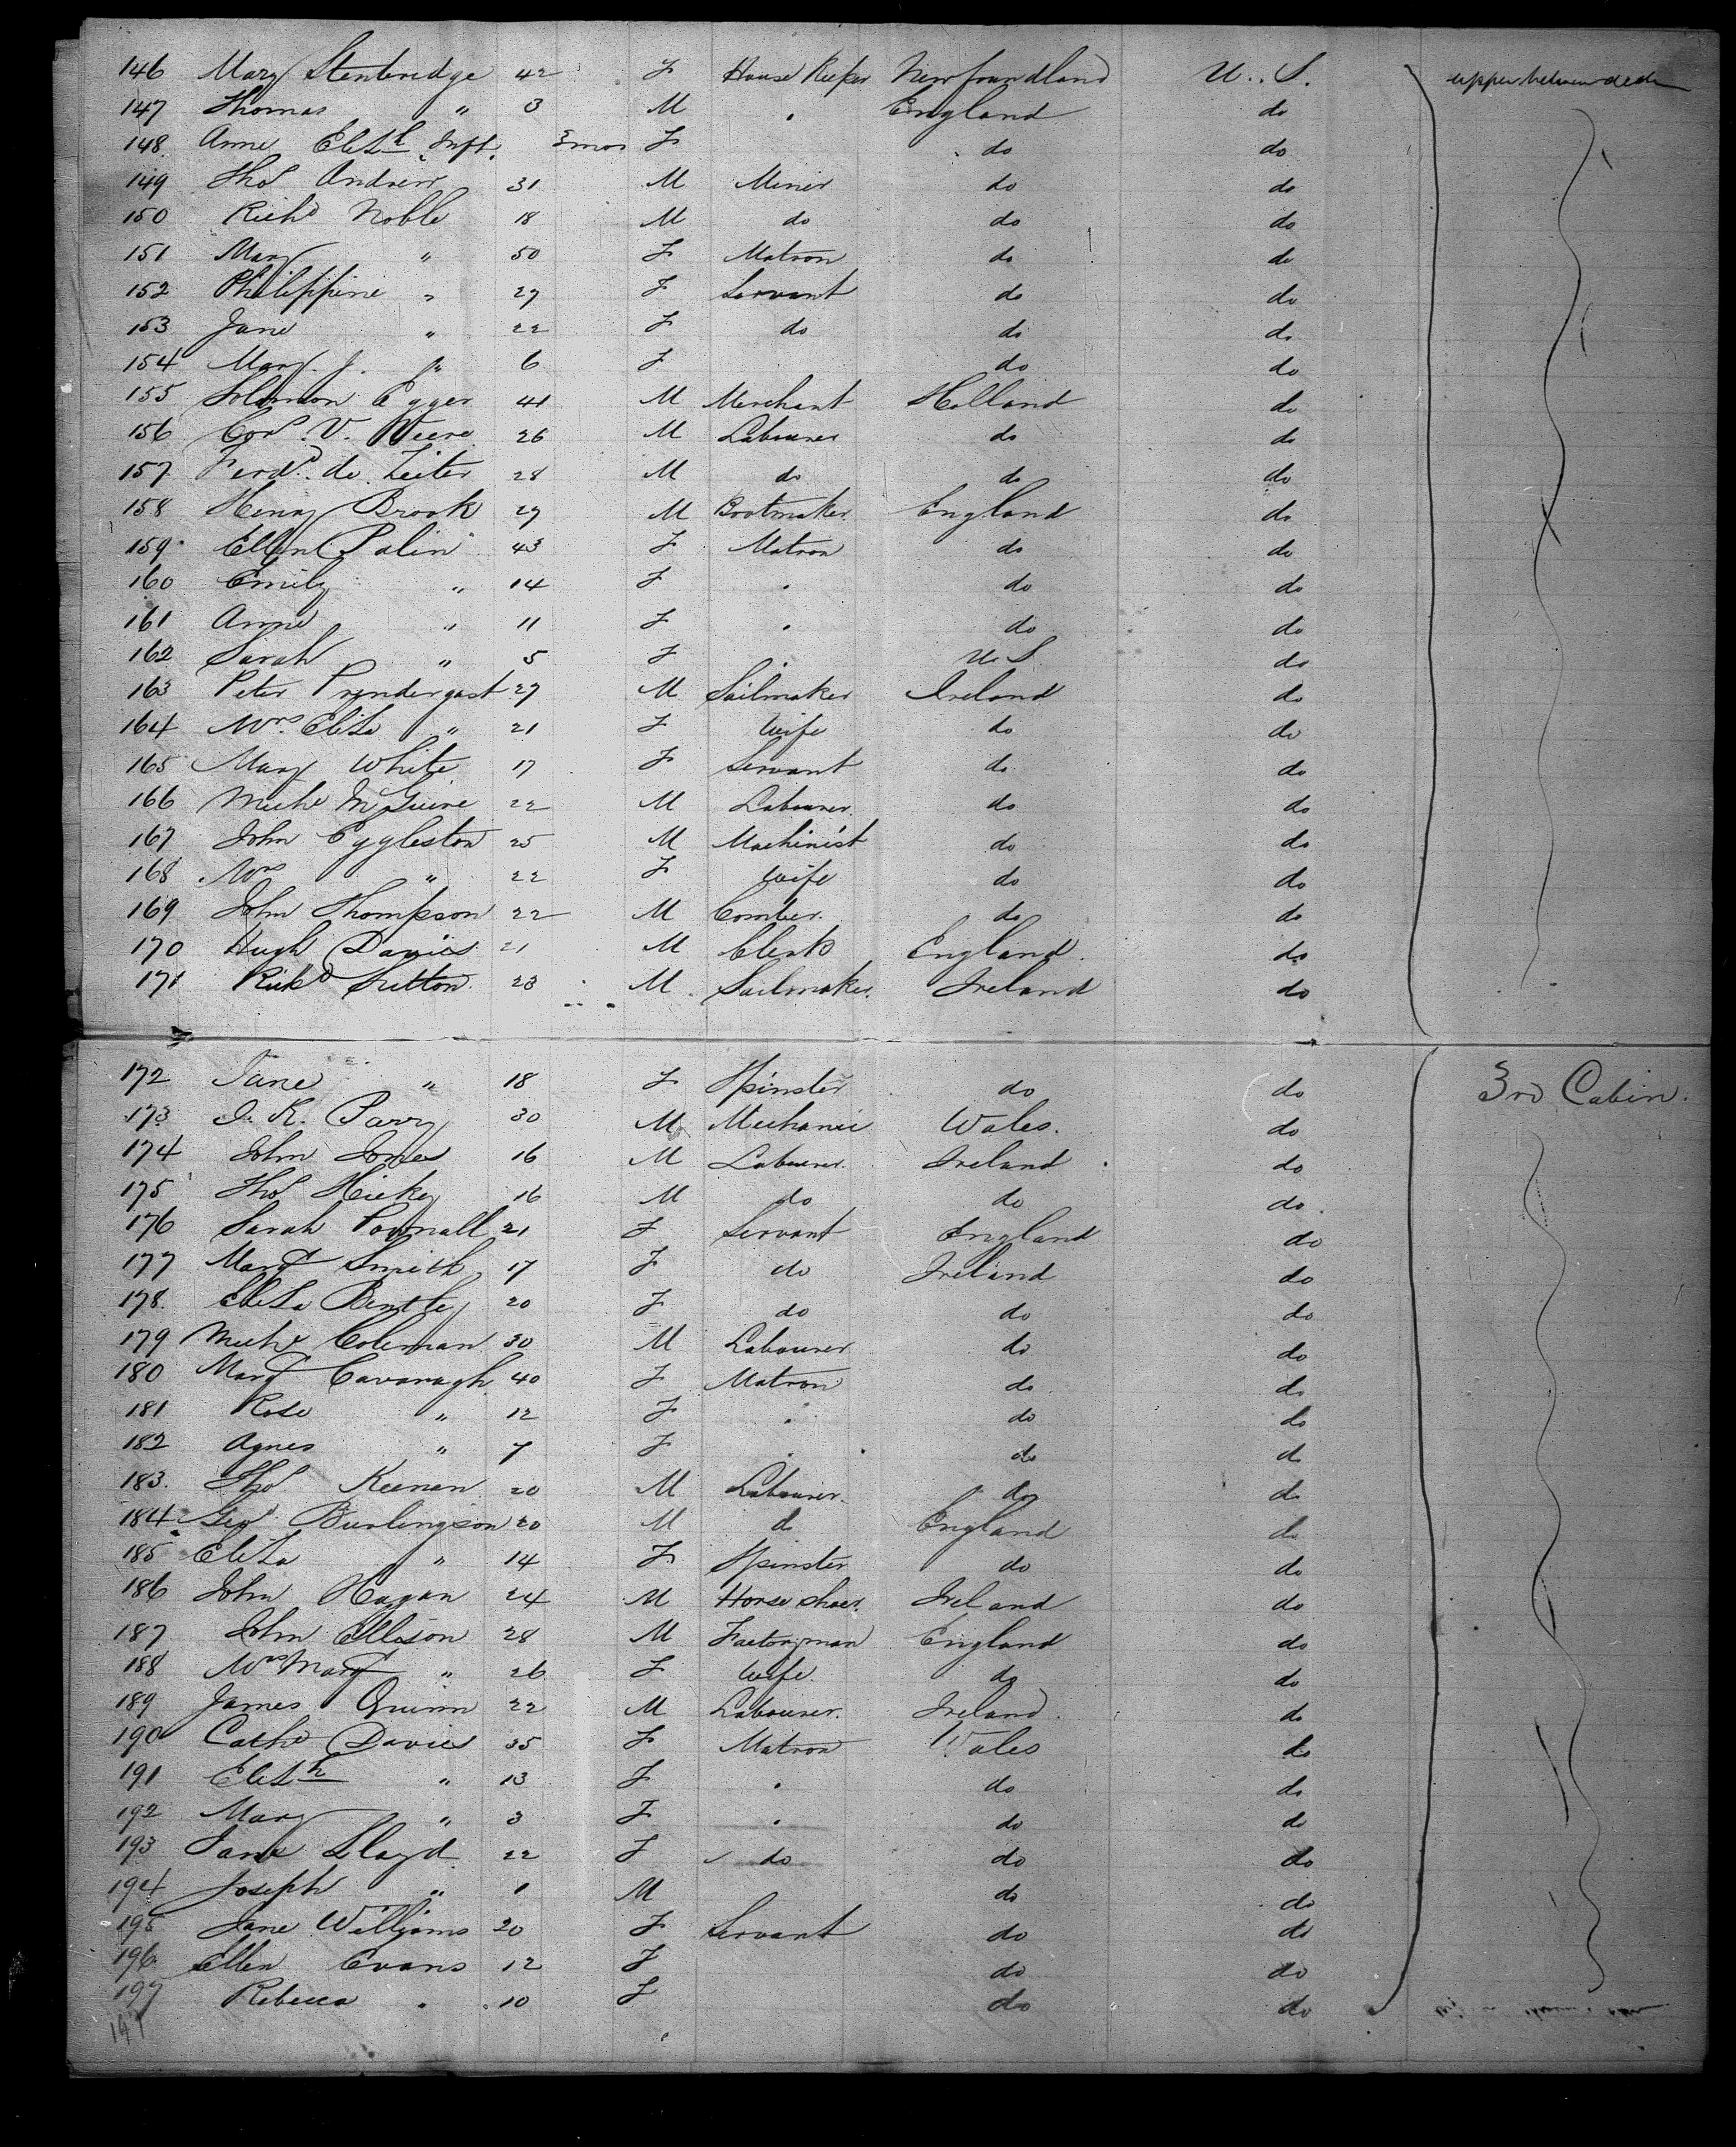 146 Mary Stenbridge 42 F House Keeper Newfoundland U.. S. upper between decks
147 Thomas " 3 M . England do
148 Anne Elizth Inft. 3 mos F do do
149 Thos Andrew 31 M Miner do do
150 Richd Noble 18 M do do do
151 Mary " 50 F Matron do do
152 Philippine " 27 F Servant do do
153 Jane " 22 F do do do
154 Mary. J. " 6 F do do
155 Solomon Egger 41 M Merchant Holland do
156 Cors. V. Weere 26 M Labourer do do
157 Ferdd. de Zeiter 28 M do do do
158 Henry Brook 27 M Bootmaker England do
159 Ellen Palin 43 F Matron do do
160 Emily " 14 F . do do
161 Anne " 11 F . do do
162 Sarah " 5 F . U.S do
163 Peter Prendergast 27 M Sailmaker Ireland do
164 Mrs. Eliza " 21 F Wife do do
165 Mary White 17 F Servant do do
166 Michl McGuire 22 M Labourer do do
167 John Eggleston 25 M Machinist do do
168 Mrs " 22 F Wife do do
169 John Thompson 22 M Comber. do do
170 Hugh Davies 21 M Clerk England. do
171 Richd Sutton 23 M Sailmaker Ireland do
172 Jane " 18 F Spinster do do 3rd Cabin.
173 J. K. Parry 30 M Mechanic Wales. do
174 John Jones 16 M Labourer. Ireland do
175 Thos Hickey 16 M do do do
176 Sarah Pownall 21 F Servant England do
177 Margt Smith 17 F do Ireland do
178. Eliza Bentley 20 F do do do
179 Michl Coleman 30 M Labourer do do
180 Margt Cavanagh 40 F Matron do do
181 Rose " 12 F . do do
182 Agnes " 7 F . do do
183. Thos Keenen 20 M Labourer. do do
184 Geo Burlingson 20 M do England do
185 Eliza " 14 F Spinster do do
186 John Hagan 24 M Horse shoer. Ireland do
187 John Ellison 28 M Factoryman England do
188 Mrs Margt " 26 F Wife. do do
189 James Quinn 22 M Labourer. Ireland. do
190 Cathe Davies 35 F Matron Wales do
191 Elizth " 13 F . do do
192 Mary " 3 F . do do
193 Jane Lloyd 22 F do do do
194 Joseph " 1 M do do
195 Jane Williams 20 F Servant do do
196. Ellen Evans 12 F do do
197 Rebecca " 10 F do do
197